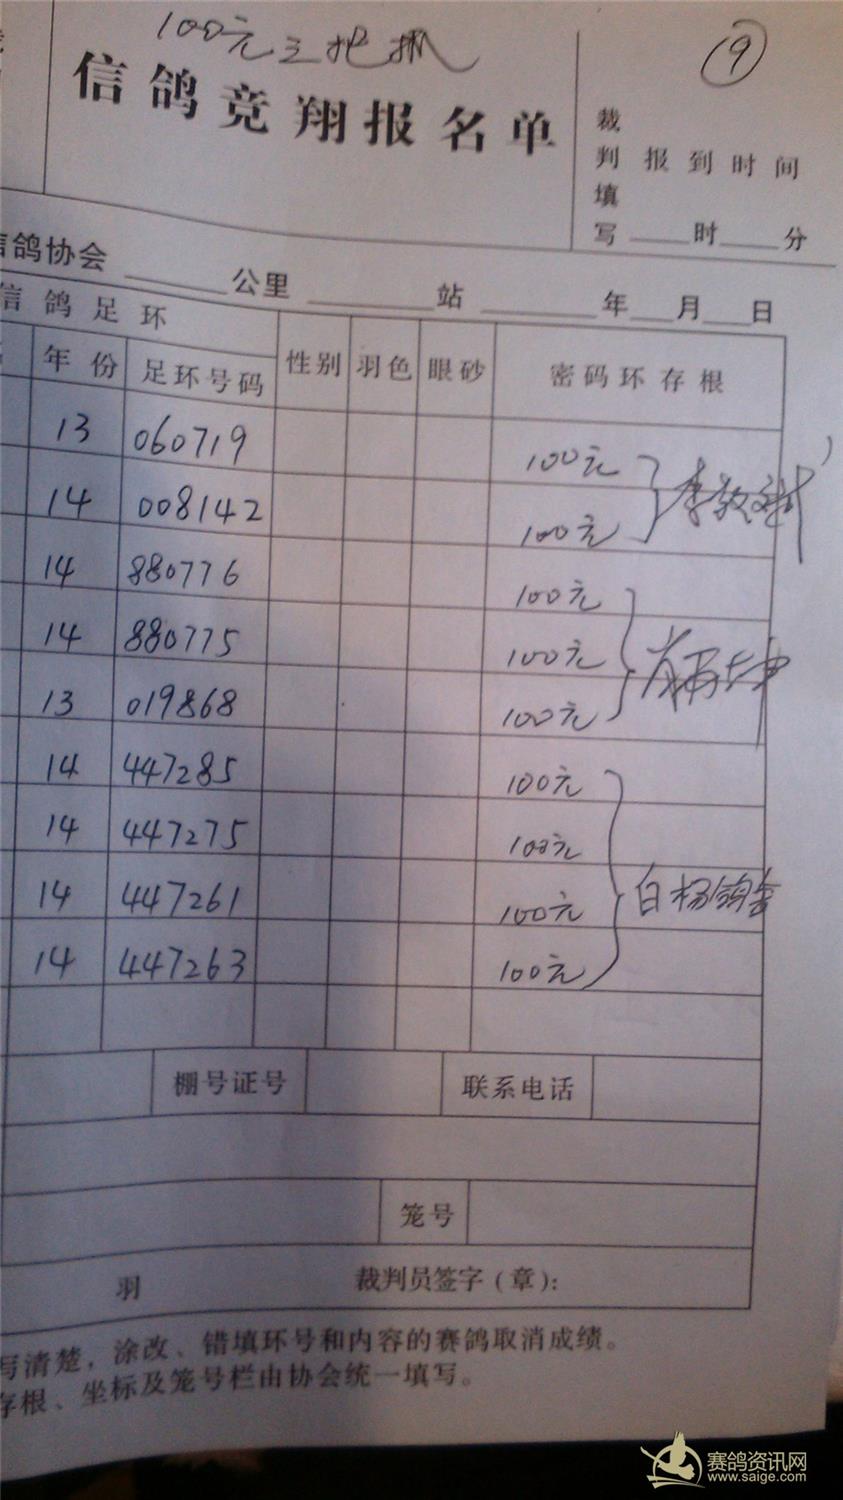 100元三把抓
⑨
信鸽竞翔报名单
裁判填写 报到时间
时 分
信鸽协会 公里 站 年 月 日
信鸽足环
年份 足环号码 性别 羽色 眼砂 密码环存根
13 060719 100元
14 008142 100元
14 880776 100元
14 880775 100元
13 019868 100元
14 447285 100元
14 447275 100元
14 447261 100元 白杨鸽舍
14 447263 100元
棚号证号 联系电话
笼号
羽 裁判员签字(章):
写清楚，涂改、错填环号和内容的赛鸽取消成绩。
存根、坐标及笼号栏由协会统一填写。
赛鸽资讯网
www.saige.com